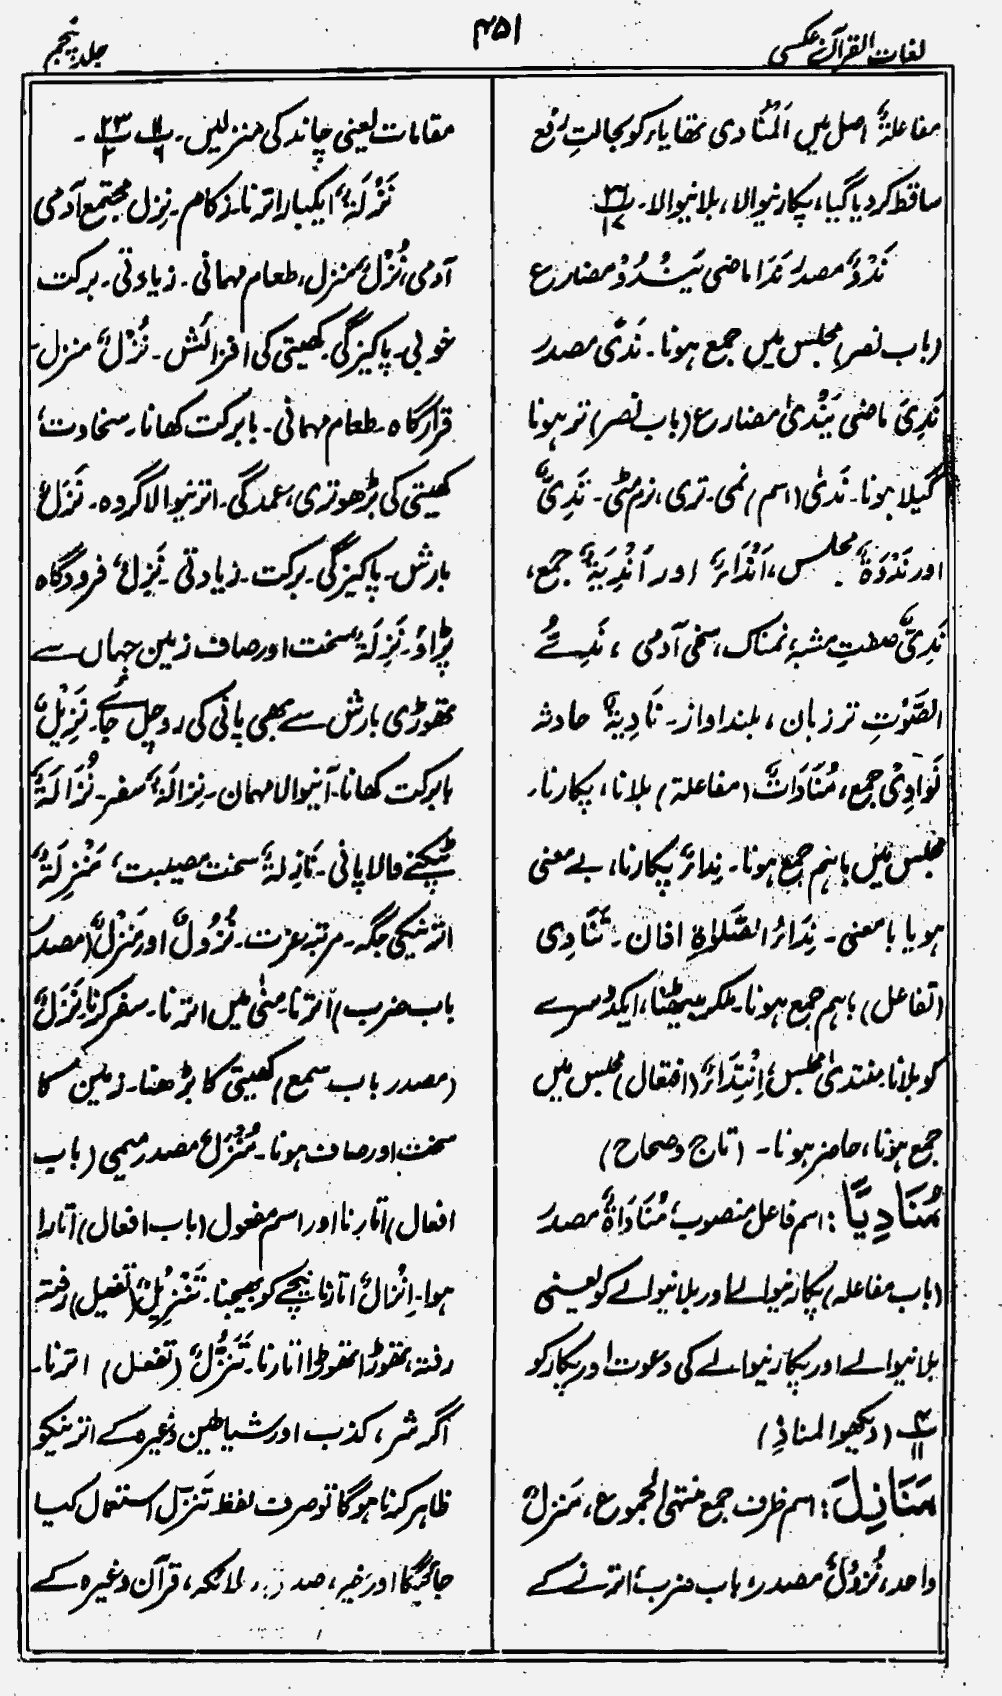 لغات القرآن عکسی
۴۵۱
جلد پنجم
مفاعلۃٌ اصل میں اَلْمُنَادی تھا یاء کو بحالتِ رفع
ساقط کر دیا گیا، پکارنیوالا، بلانیوالا۔ پ ۲۶/۱۷
نَدْوٌ مصدر نَدَا ماضی یَنْدُوْ مضارع
(باب نصر) مجلس میں جمع ہونا۔ نَدًی مصدر
نَدِیَ ماضی یَنْدیٰ مضارع (باب نصر) تر ہونا
گیلا ہونا۔ نَدیٰ (اسم) نمی۔ تری، نرم مٹی۔ نَدِیٌّ
اور نَدْوَۃٌ مجلس، اَنْدَاءٌ اور اَنْدِیَۃٌ جمع،
نَدِیٌّ صفتِ مشبہ، نمناک، سخی آدمی، نَدِیُّ
الصَّوْتِ تر زبان، بلند آواز۔ نَادِیَۃٌ حادثہ
نَوَادِیْ جمع، مُنَادَاتٌ (مفاعلۃ) بلانا، پکارنا۔
مجلس میں باہم جمع ہونا۔ نِداءٌ پکارنا، بے معنی
ہو یا بامعنی۔ نِدَاءُ الصَّلوٰۃِ اذان۔ تَنَادِی
(تفاعل) باہم جمع ہونا۔ ملکر بیٹھنا، ایکدوسرے
کو بلانا منتدیٰ مجلس، اِنْتِدَاءٌ (افتعال) مجلس میں
جمع ہونا، حاضر ہونا۔ (تاج و صحاح)
مُنَادِیًا: اسم فاعل منصوب، مُنَادَاۃٌ مصدر
(باب مفاعلہ) پکارنیوالے اور بلانیوالے کو یعنی
بلانیوالے اور پکارنیوالے کی دعوت اور پکار کو
پ ۴/۱۱ (دیکھو المنادِ)
مَنَازِلَ: اسم ظرف جمع منتہی الجموع، مَنزِلٌ
واحد، نُزُوْلٌ مصدر، باب ضرب، اترنے کے
مقامات یعنی چاند کی منزلیں۔ پ ۱۱/۶ پ ۲۳/۲۔
نَزْلَۃٌ ایکبار اترنا۔ زکام۔ نِزل مجتمع آدمی
آدمی، نُزُلٌ منزل، طعام مہمانی۔ زیادتی۔ برکت
خوبی۔ پاکیزگی۔ کھیتی کی افزائش۔ نُزْلٌ منزل۔
قرارگاہ۔ طعام مہمانی۔ بابرکت کھانا۔ سخاوت،
کھیتی کی بڑھوتری، عمدگی۔ اترنیوالا گروہ۔ نَزَلٌ
بارش۔ پاکیزگی۔ برکت۔ زیادتی۔ نَزِلٌ فرودگاہ
پڑاؤ۔ نَزِلَۃٌ سخت اور صاف زمین جہاں سے
تھوڑی بارش سے بھی پانی کی رو چل جائے۔ نَزِیْلٌ
بابرکت کھانا۔ آنیوالا مہمان۔ نِزالَۃٌ سفر۔ نُزَالَۃٌ
ٹپکنے والا پانی۔ نَازِلۃٌ سخت مصیبت، مَنْزِلَۃٌ
اترنیکی جگہ۔ مرتبہ عزت۔ نُزُولٌ اور مَنْزَلٌ (مصدر
باب ضرب) اترنا۔ منیٰ میں اترنا۔ سفر کرنا۔ نَزَلٌ
(مصدر باب سمع) کھیتی کا بڑھنا۔ زمین کا
سخت اور صاف ہونا۔ مُنْزَلٌ مصدر میمی (باب
افعال) اتارنا اور اسم مفعول (باب افعال) اتارا
ہوا۔ اِنْزالٌ اتارنا نیچے کو بھیجنا۔ تَنْزِیْلٌ (تفعیل) رفتہ
رفتہ، تھوڑا تھوڑا اتارنا۔ تَنَزُّلٌ (تفعل) اترنا۔
اگر شر، کذب اور شیاطین وغیرہ کے اترنیکو
ظاہر کرنا ہوگا تو صرف لفظ تَنَزُّل استعمال کیا
جائیگا اور خیر، ملائکہ، قرآن وغیرہ کے